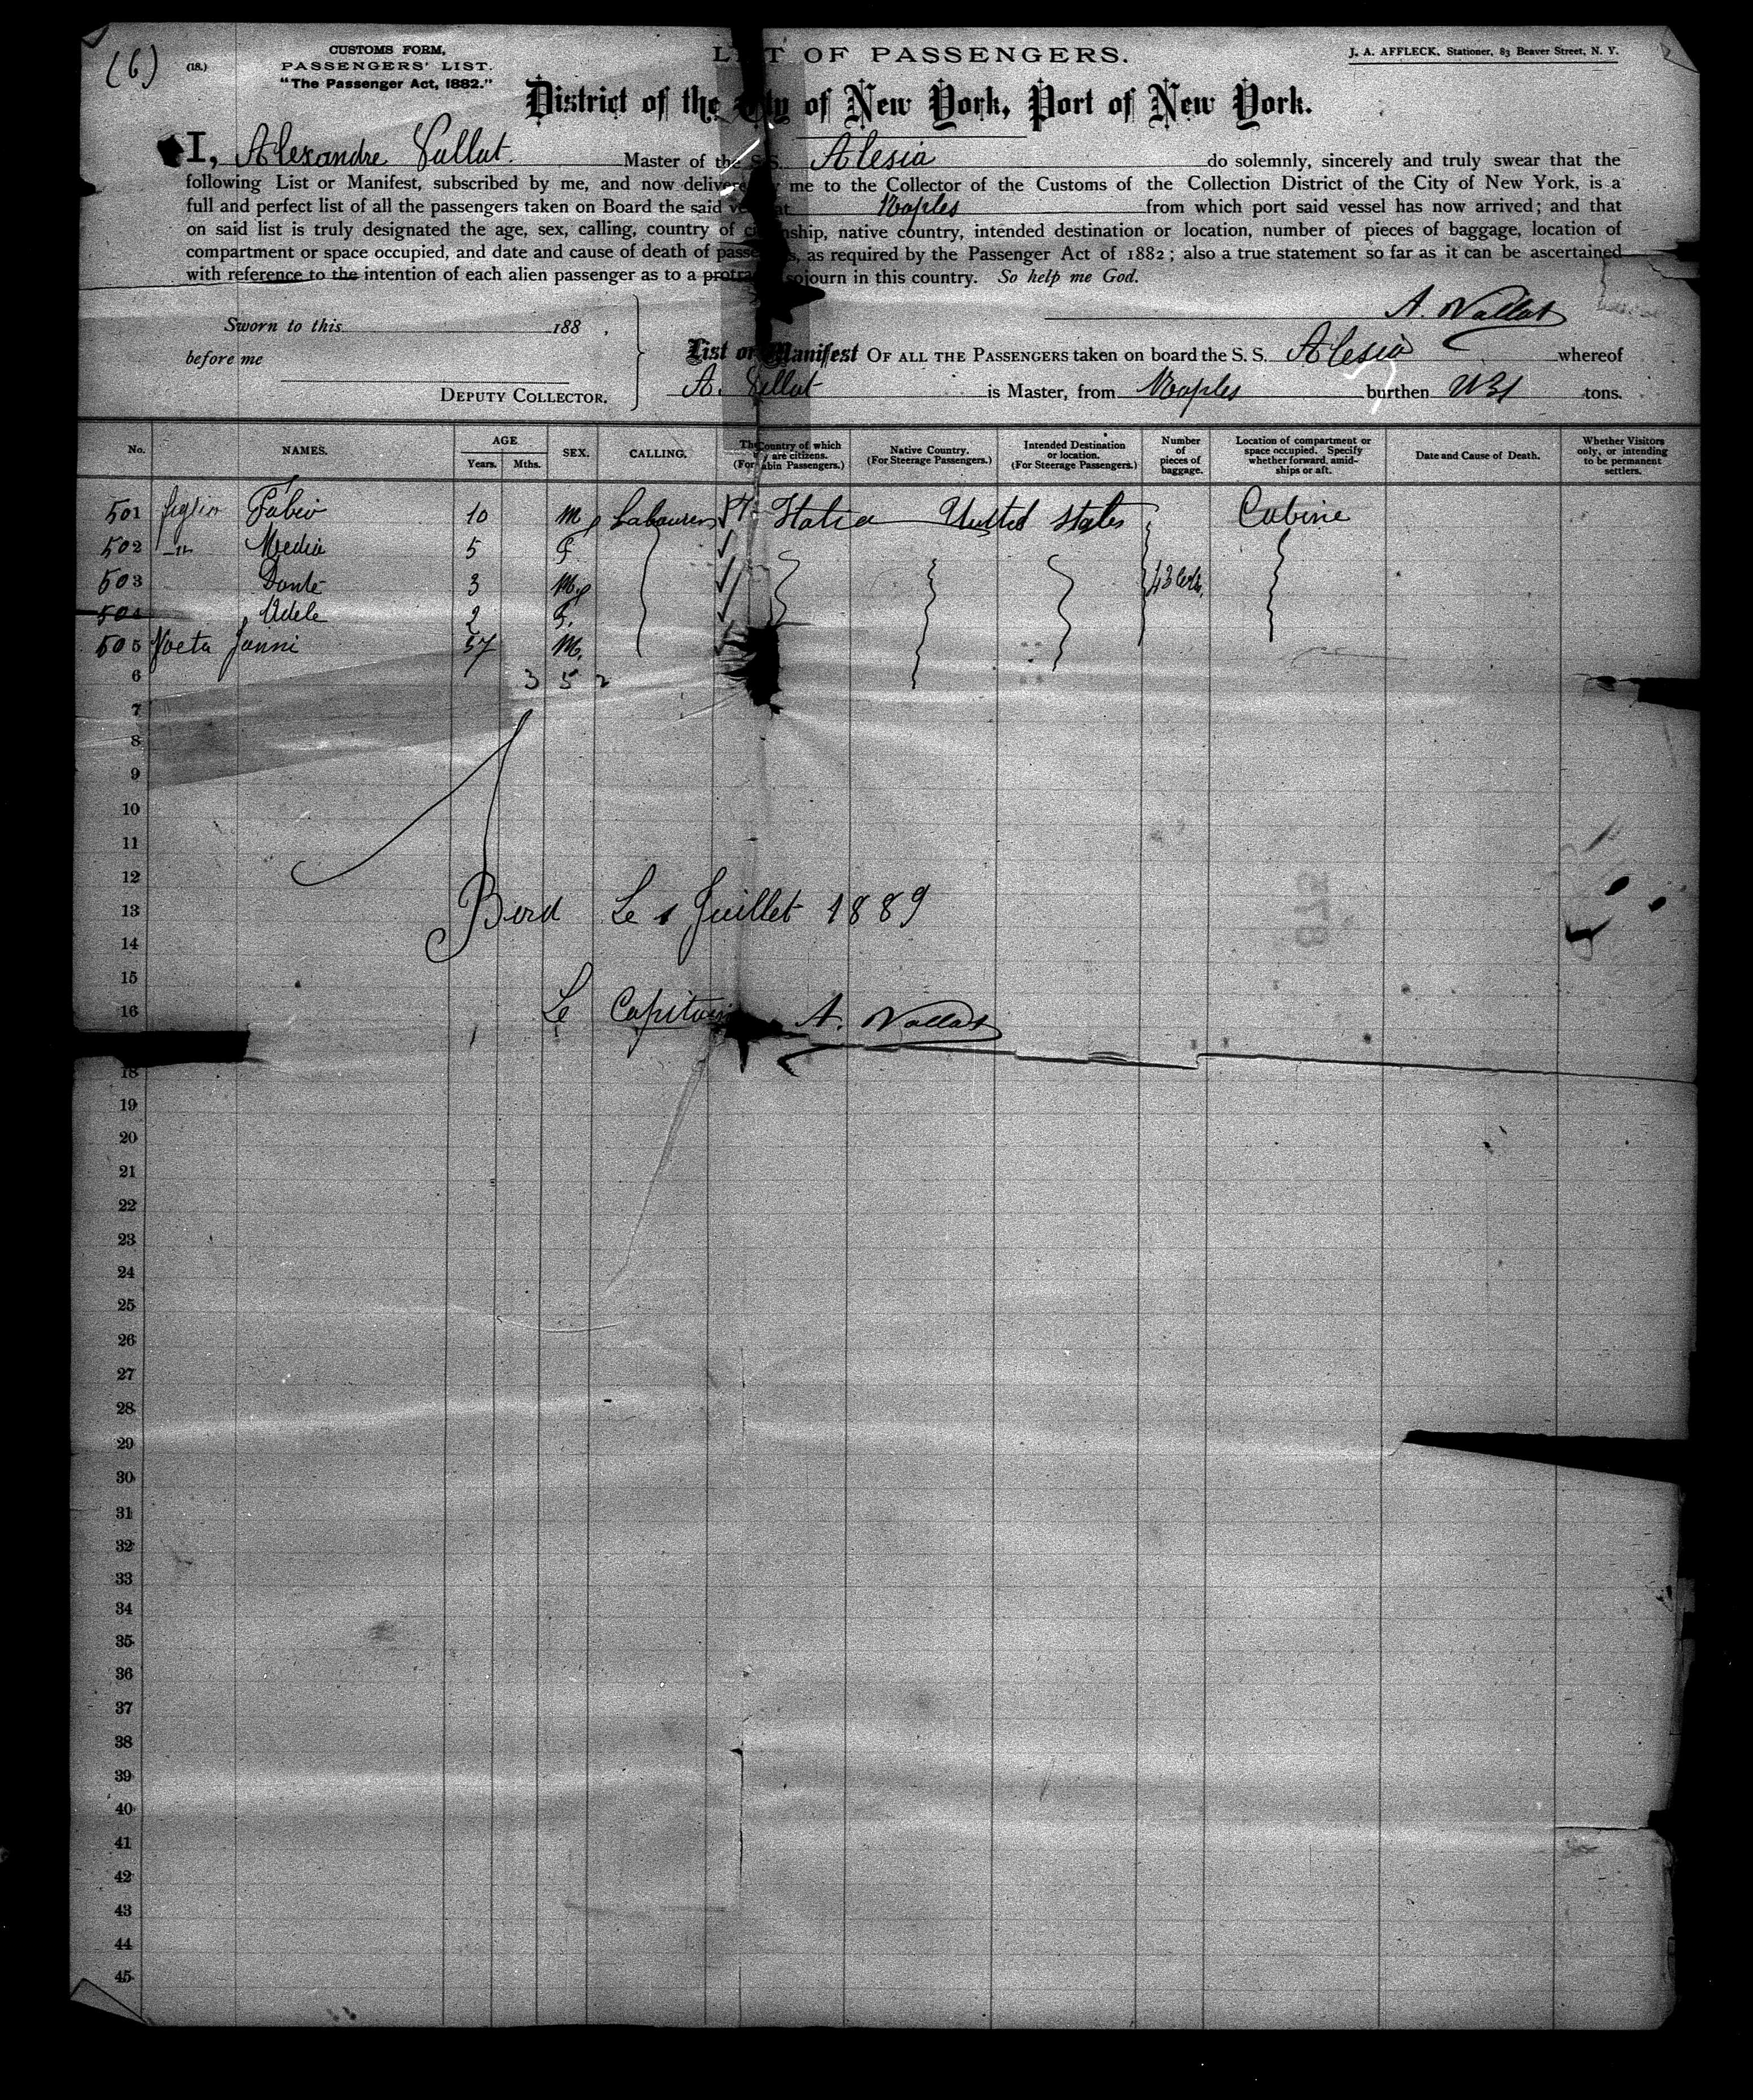 (6)
(18.)
CUSTOMS FORM,
PASSENGERS' LIST.
"The Passenger Act, 1882."
LIST OF PASSENGERS.
J. A. AFFLECK, Stationer, 83 Beaver Street, N. Y.
District of the City of New York, Port of New York.
I, Alexandre Vallat. Master of the S.S. Alesia do solemnly, sincerely and truly swear that the
following List or Manifest, subscribed by me, and now delivered by me to the Collector of the Customs of the Collection District of the City of New York, is a
full and perfect list of all the passengers taken on Board the said vessel at Naples from which port said vessel has now arrived; and that
on said list is truly designated the age, sex, calling, country of citizenship, native country, intended destination or location, number of pieces of baggage, location of
compartment or space occupied, and date and cause of death of passengers, as required by the Passenger Act of 1882; also a true statement so far as it can be ascertained
with reference to the intention of each alien passenger as to a protracted sojourn in this country. So help me God.
A. Vallat
Sworn to this 188 .
before me
DEPUTY COLLECTOR.
List or Manifest OF ALL THE PASSENGERS taken on board the S. S. Alesia whereof
A. Vallat is Master, from Naples burthen tons.
No. NAMES. AGE Years. Mths. SEX. CALLING. The Country of which they are citizens. (For Cabin Passengers.) Native Country. (For Steerage Passengers.) Intended Destination or location. (For Steerage Passengers.) Number of pieces of baggage. Location of compartment or space occupied. Specify whether forward, amidships or aft. Date and Cause of Death. Whether Visitors only, or intending to be permanent settlers.
501 figlio Fabio 10 M Labourers Italia United States Cabine
502 -"- Media 5 F
503 Dante 3 M 43
504 Adele 2 F.
505 Poeta Janni 57 M.
6 3 5 2
7
8
9
10
11
12
13 Bord Le 1 Juillet 1889
14
15
16 Le Capitaine A. Vallat
18
19
20
21
22
23
24
25
26
27
28
29
30
31
32
33
34
35
36
37
38
39
40
41
42
43
44
45